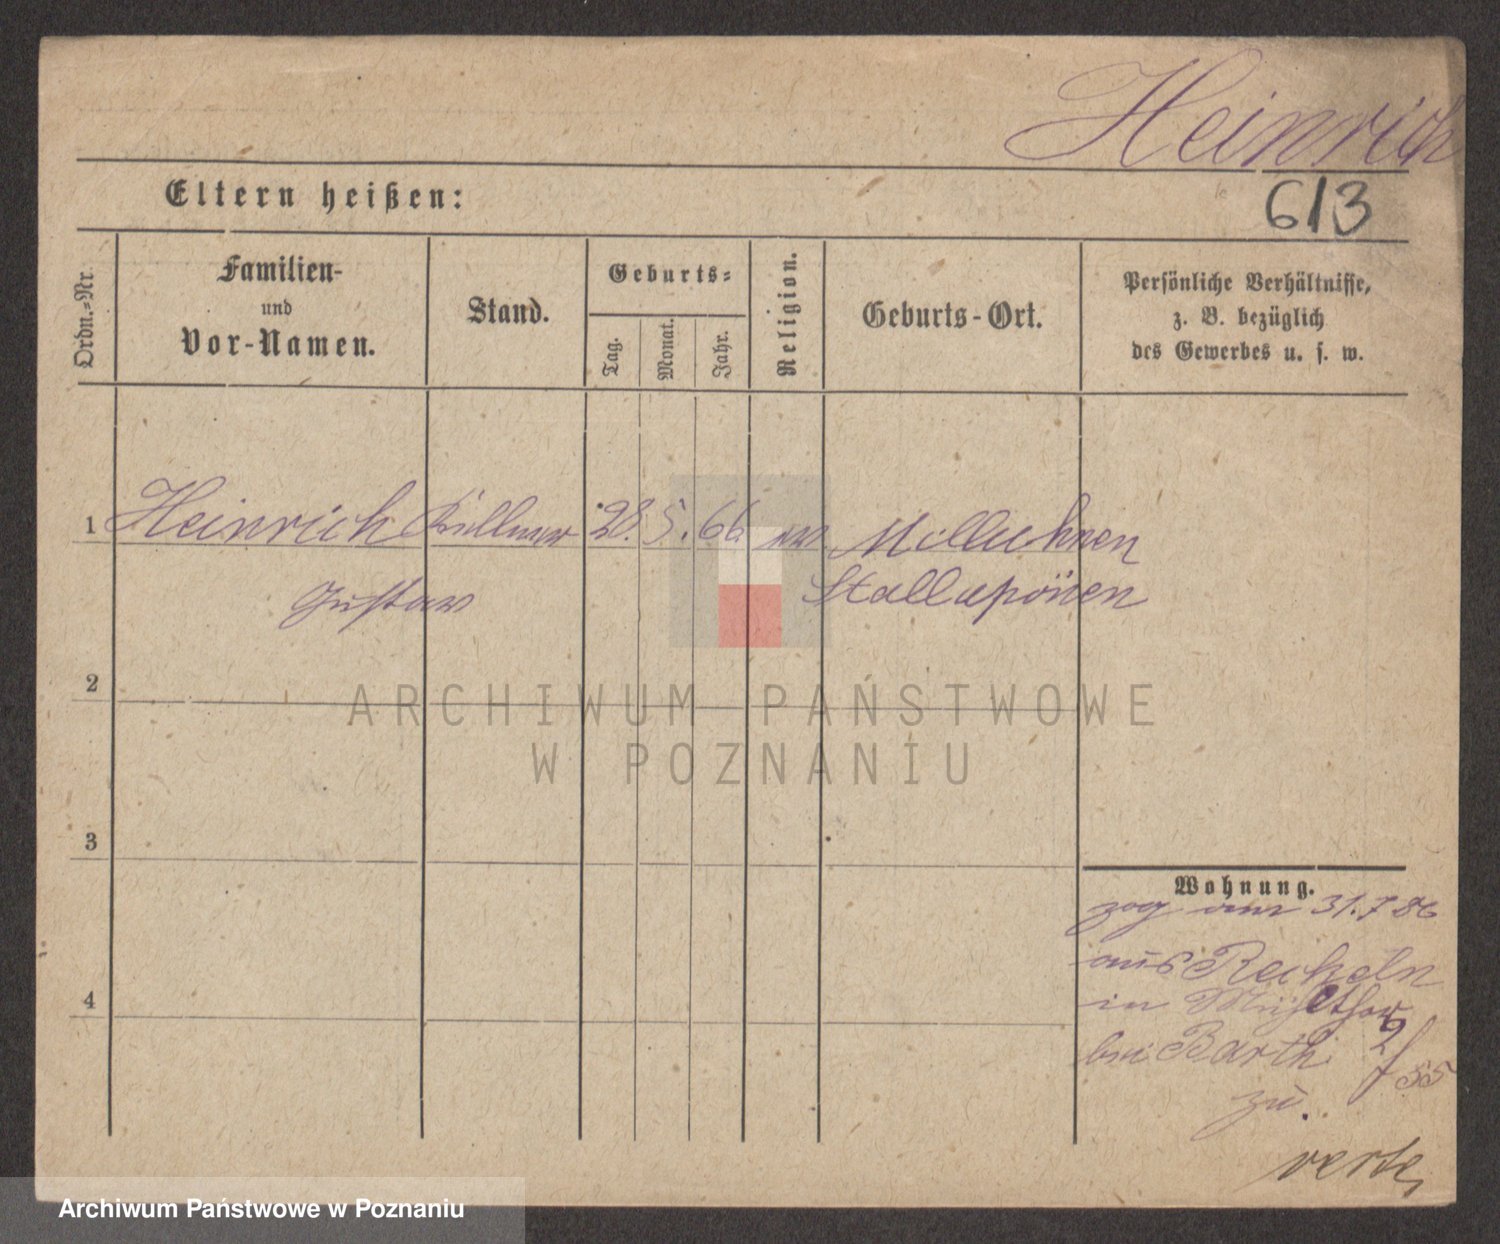 Heinrich
Eltern heißen:
613
Ordn.-Nr.
Familien-
und
Vor-Namen.
Stand.
Geburts-
Tag.
Monat.
Jahr.
Religion.
Geburts-Ort.
Persönliche Verhältnisse,
z. B. bezüglich
des Gewerbes u. s. w.
1 Heinrich Kellner 28. 5. 66 Milluhnen
Gustav Stallupönen
2
ARCHIWUM PAŃSTWOWE
W POZNANIU
3
Wohnung.
zog am 31.7 86
aus
in
bei Barth 2/55
zu.
4
verte
Archiwum Państwowe w Poznaniu